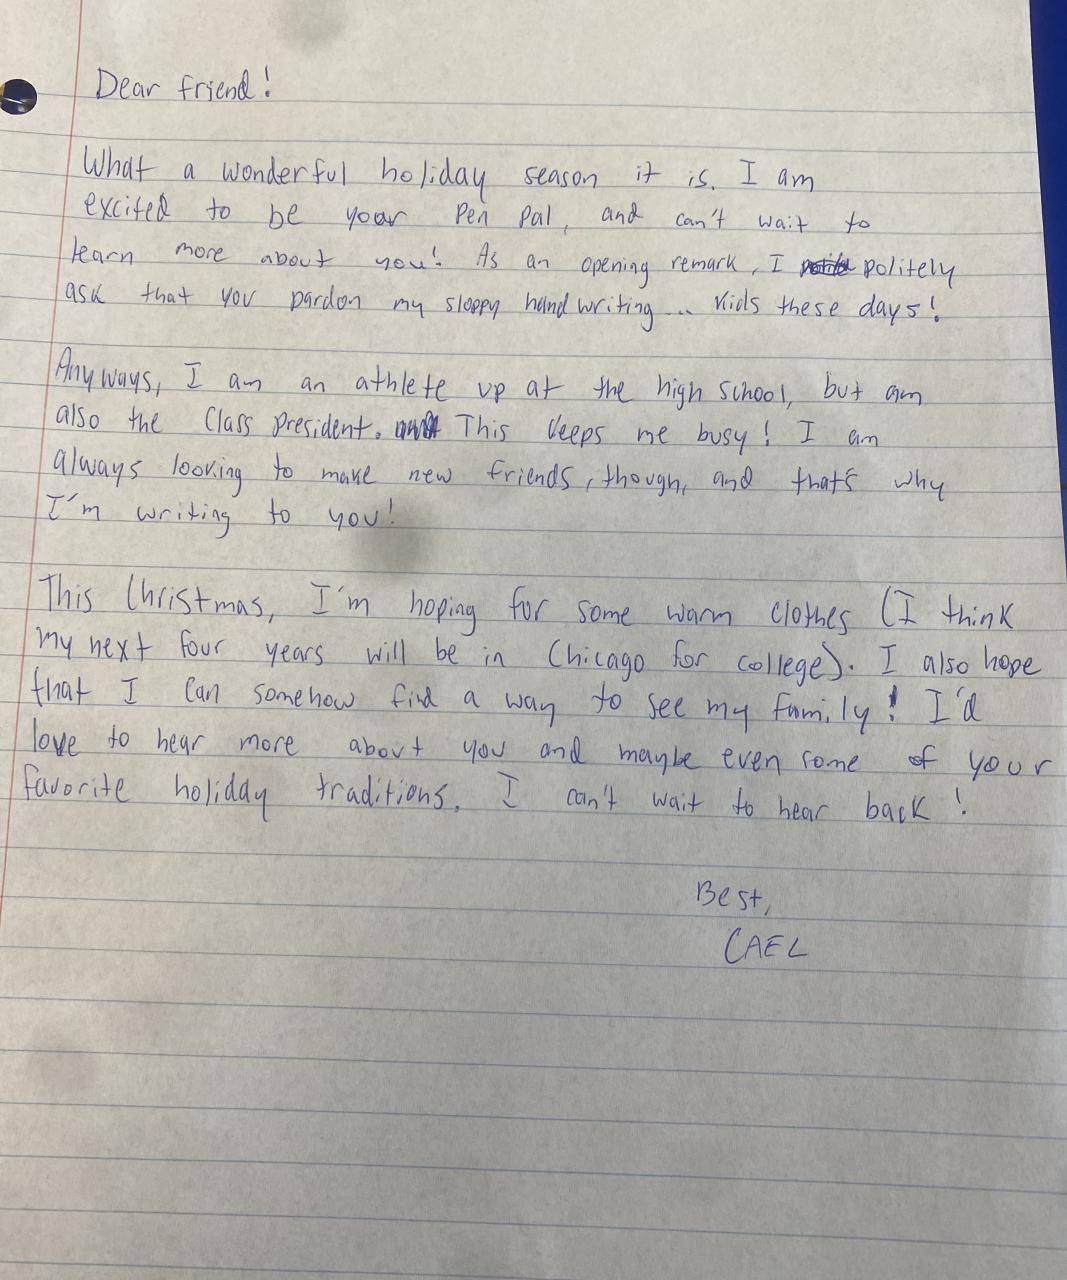 Dear friend!
What a wonderful holiday season it is. I am
excited to be your Pen Pal, and can't wait to
learn more about you! As an opening remark, I politely
ask that you pardon my sloppy handwriting... Kids these days!
Anyways, I am an athlete up at the high school, but am
also the Class President. This keeps me busy! I am
always looking to make new friends, though, and that's why
I'm writing to you!
This Christmas, I'm hoping for some warm clothes (I think
my next four years will be in Chicago for college). I also hope
that I can somehow find a way to see my family! I'd
love to hear more about you and maybe even some of your
favorite holiday traditions. I can't wait to hear back!
Best,
CAEL